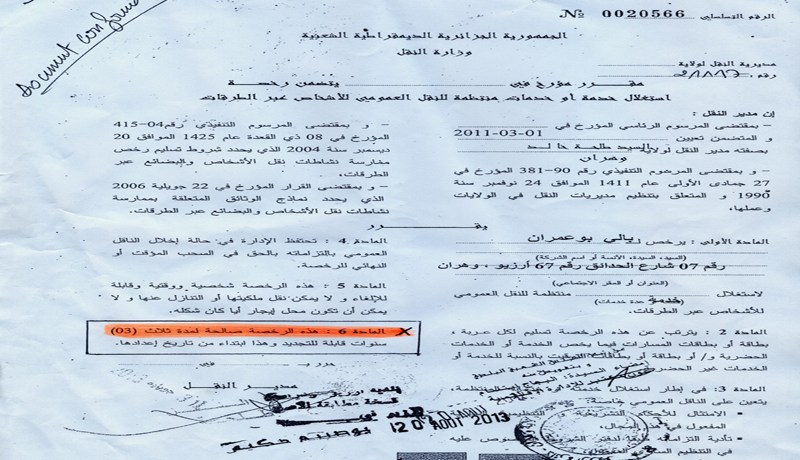 Document conforme
الرقم التسلسلي № 0020566
الجمهورية الجزائرية الديمقراطية الشعبية
وزارة النقل
مديرية النقل لولاية
رقم
مقرر مؤرخ في يتضمن رخصة
استغلال خدمة أو خدمات منتظمة للنقل العمومي للأشخاص عبر الطرقات
إن مدير النقل :
– بمقتضى المرسوم الرئاسي المؤرخ في
و المتضمن تعيين 2011-03-01
السيد طلحة خالد
بصفته مدير النقل لولاية وهران
– و بمقتضى المرسوم التنفيذي رقم 90-381 المؤرخ في
27 جمادى الأولى عام 1411 الموافق 24 نوفمبر سنة
1990 و المتعلق بتنظيم مديريات النقل في الولايات
وعملها،
– و بمقتضى المرسوم التنفيذي رقم 04-415
المؤرخ في 08 ذي القعدة عام 1425 الموافق 20
ديسمبر سنة 2004 الذي يحدد شروط تسليم رخص
ممارسة نشاطات نقل الأشخاص والبضائع عبر
الطرقات.
– و بمقتضى القرار المؤرخ في 22 جويلية 2006
الذي يحدد نماذج الوثائق المتعلقة بممارسة
نشاطات نقل الأشخاص والبضائع عبر الطرقات.
يقرر
المادة الأولى : يرخص لـ يالي بوعمران
(السيد، السيدة، الآنسة أو اسم الشركة)
رقم 07 شارع الحدائق رقم 67 أرزيو ، وهران
(العنوان أو المقر الاجتماعي)
لاستغلال خدمة منتظمة للنقل العمومي
(خدمة عدة خدمات)
للأشخاص عبر الطرقات.
المادة 2 : يترتب عن هذه الرخصة تسليم لكل عربة ،
بطاقة أو بطاقات المسارات فيما يخص الخدمة أو الخدمات
الحضرية و/ أو بطاقة أو بطاقات التوقيت بالنسبة للخدمة أو
الخدمات غير الحضرية
المادة 3: في إطار استغلال خدمات المنتظمة،
يتعين على الناقل العمومي خاصة:
الامتثال للأحكام التشريعية و التنظيمية
المفعول في هذا المجال،
تأدية التزاماته طبقا لدفتر الشروط المنصوص عليه
في التنظيم
المادة 4 : تحتفظ الإدارة في حالة إخلال الناقل
العمومي بالتزاماته بالحق في السحب المؤقت أو
النهائي للرخصة.
المادة 5 : هذه الرخصة شخصية ووقتية وقابلة
للإلغاء و لا يمكن نقل ملكيتها أو التنازل عنها و لا
يمكن أن تكون محل إيجار أيا كان شكله.
المادة 6 : هذه الرخصة صالحة لمدة ثلاث (03)
سنوات قابلة للتجديد وهذا ابتداء من تاريخ إعدادها.
في
مدير النقل
نسخة مطابقة للأصل
120 AOUT 2013